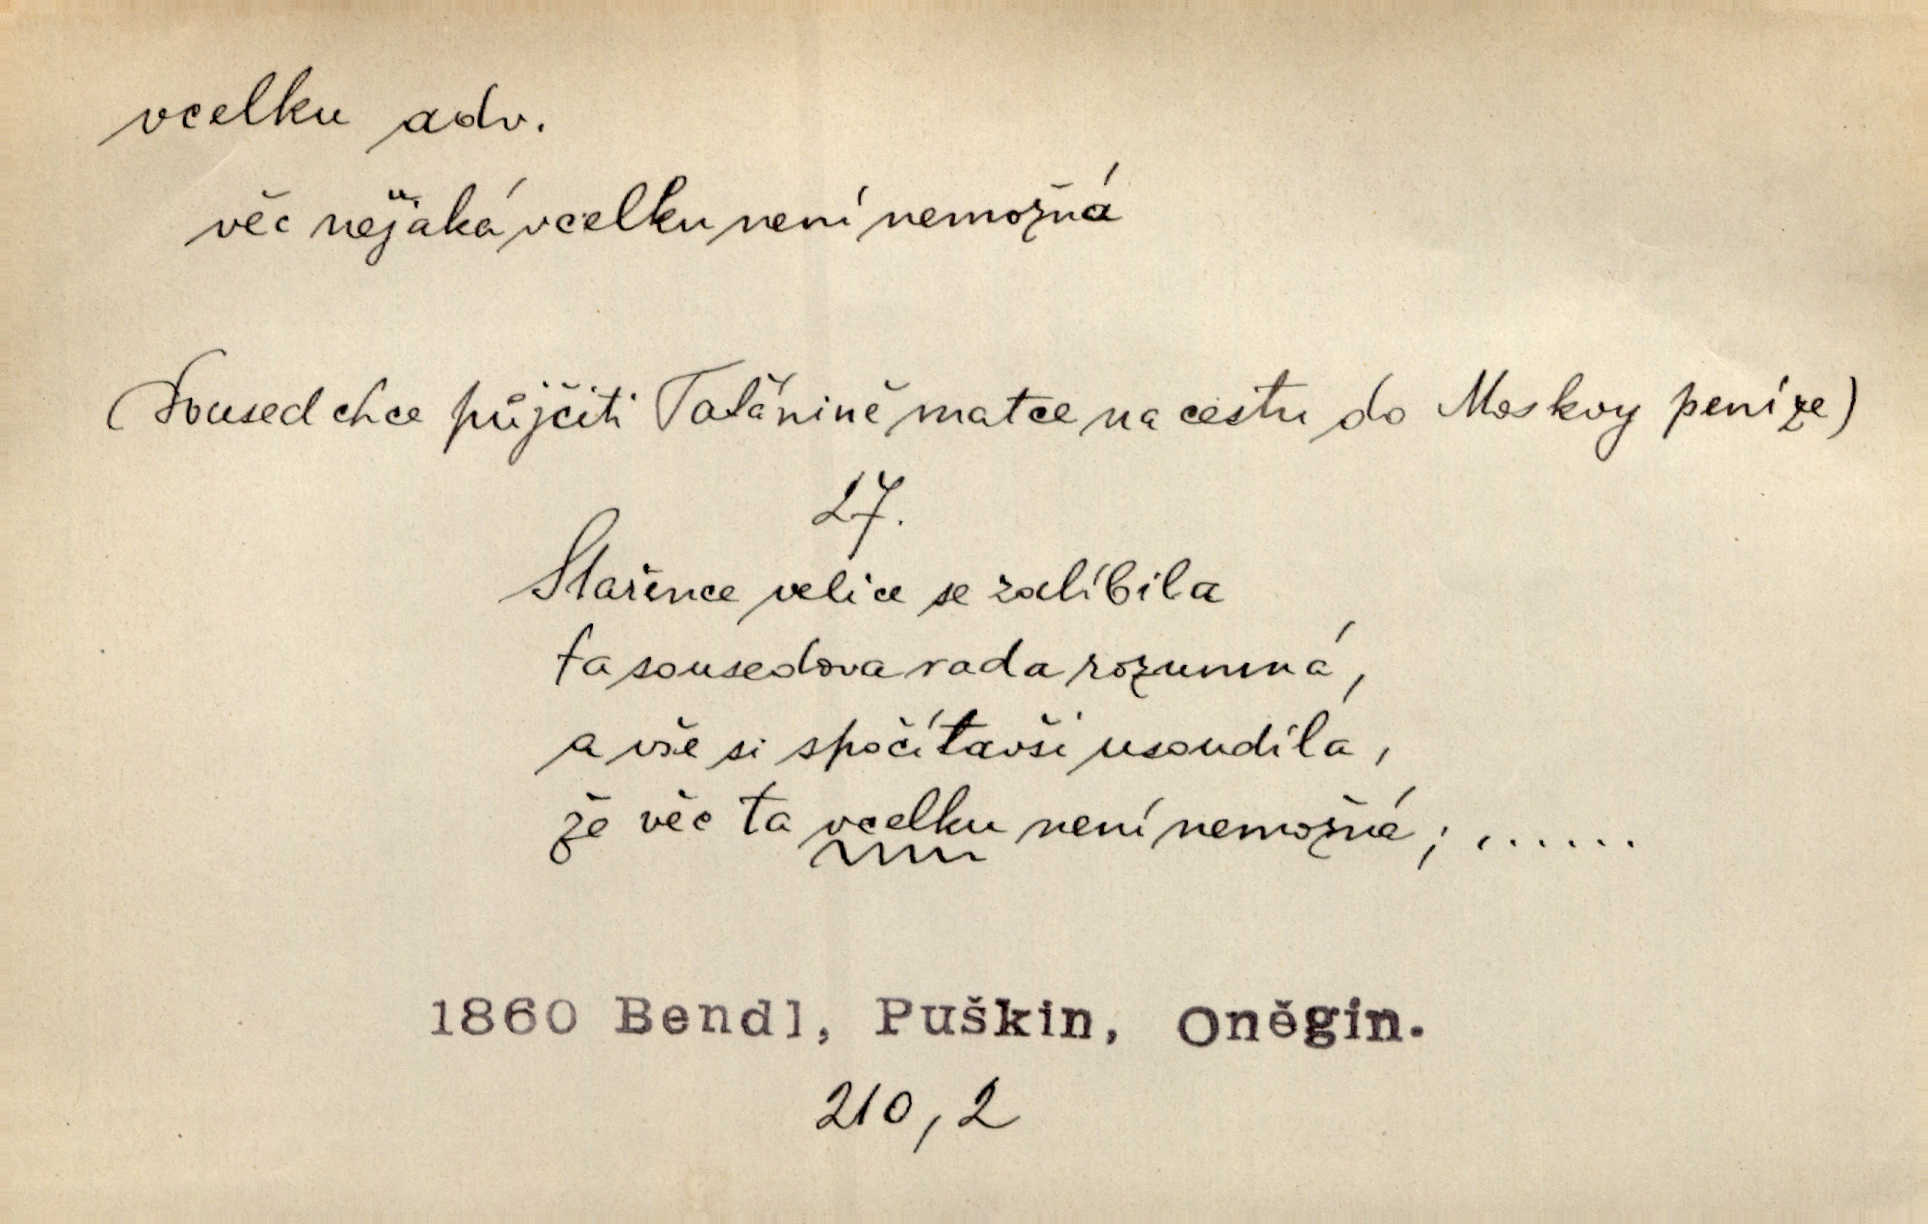 vcelku adv.
věc nějaká vcelku není nemožná
(Soused chce půjčiti Tatánině matce na cestu do Moskvy peníze)
27.
Stařence velice se zalíbila
ta sousedova rada rozumná,
a vše si spočítavši usoudila,
že věc ta vcelku není nemožná; ......
1860 Bendl, Puškin, Oněgin.
210,2